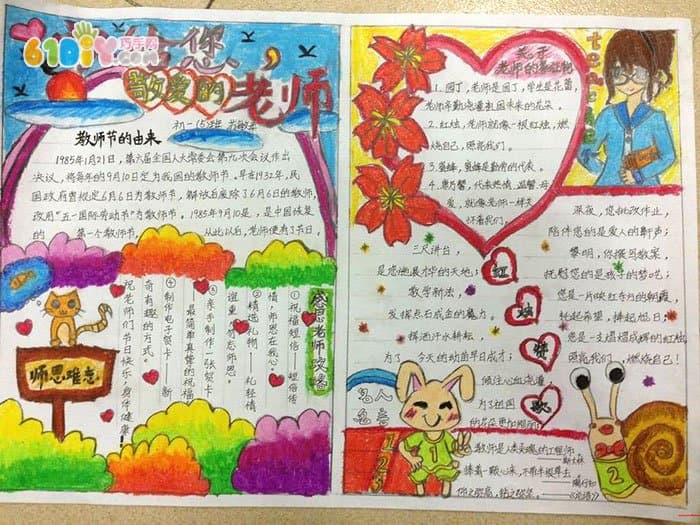 61DIY.com
巧手网
您
敬爱的老师
教师节的由来
1985年1月21日，第六届全国人大常委会第九次会议作出
决议，将每年的9月10日定为我国的教师节。早在1932年，民
国政府曾规定6月6日为教师节，解放后废除了6月6日的教师节，
改用“五一国际劳动节”为教师节，1985年9月10是，是中国恢复
的第一个教师节，从此以后，老师便有了节日。
感恩老师致敬
①祝福短信——短信传
情，师恩在我心。
②精选礼物——礼轻情
谊重，有恋师恩。
③亲手制作一张贺卡——
最简单真情的祝福
④制作电子贺卡——新
奇有趣的方式。
祝老师们节日快乐，身体健康！
师恩难忘
关于
老师的
1. 园丁，老师是园丁，学生是花蕾，
老师辛勤浇灌祖国未来的花朵。
2. 红烛，老师就像一根红烛，燃
烧自己，照亮我们。
3. 蜜蜂，蜜蜂是勤劳的代表。
4. 康乃馨，代表热情、温馨、母
爱，就像老师一样关
怀着我们。
teacher
红烛赞歌
三尺讲台，
是您施展才华的天地；
教学新法，
发挥点石成金的魔力。
挥洒汗水耕耘，
为了今天的幼苗早日成才；
倾注心血浇灌，
为了祖国
的花朵更加艳丽；
深夜，您批改作业，
陪伴您的是爱人的鼾声；
黎明，你撰写教案，
抚慰您的是孩子的梦呓；
您是一片映红东方的朝霞，
托起希望，捧起旭日；
您是一支熠熠成辉的红烛，
照亮我们，燃烧自己！
名人
名言
教师是人类灵魂的工程师。
——斯大林
捧着一颗心来，不带半根草去。
——陶行知
1
2